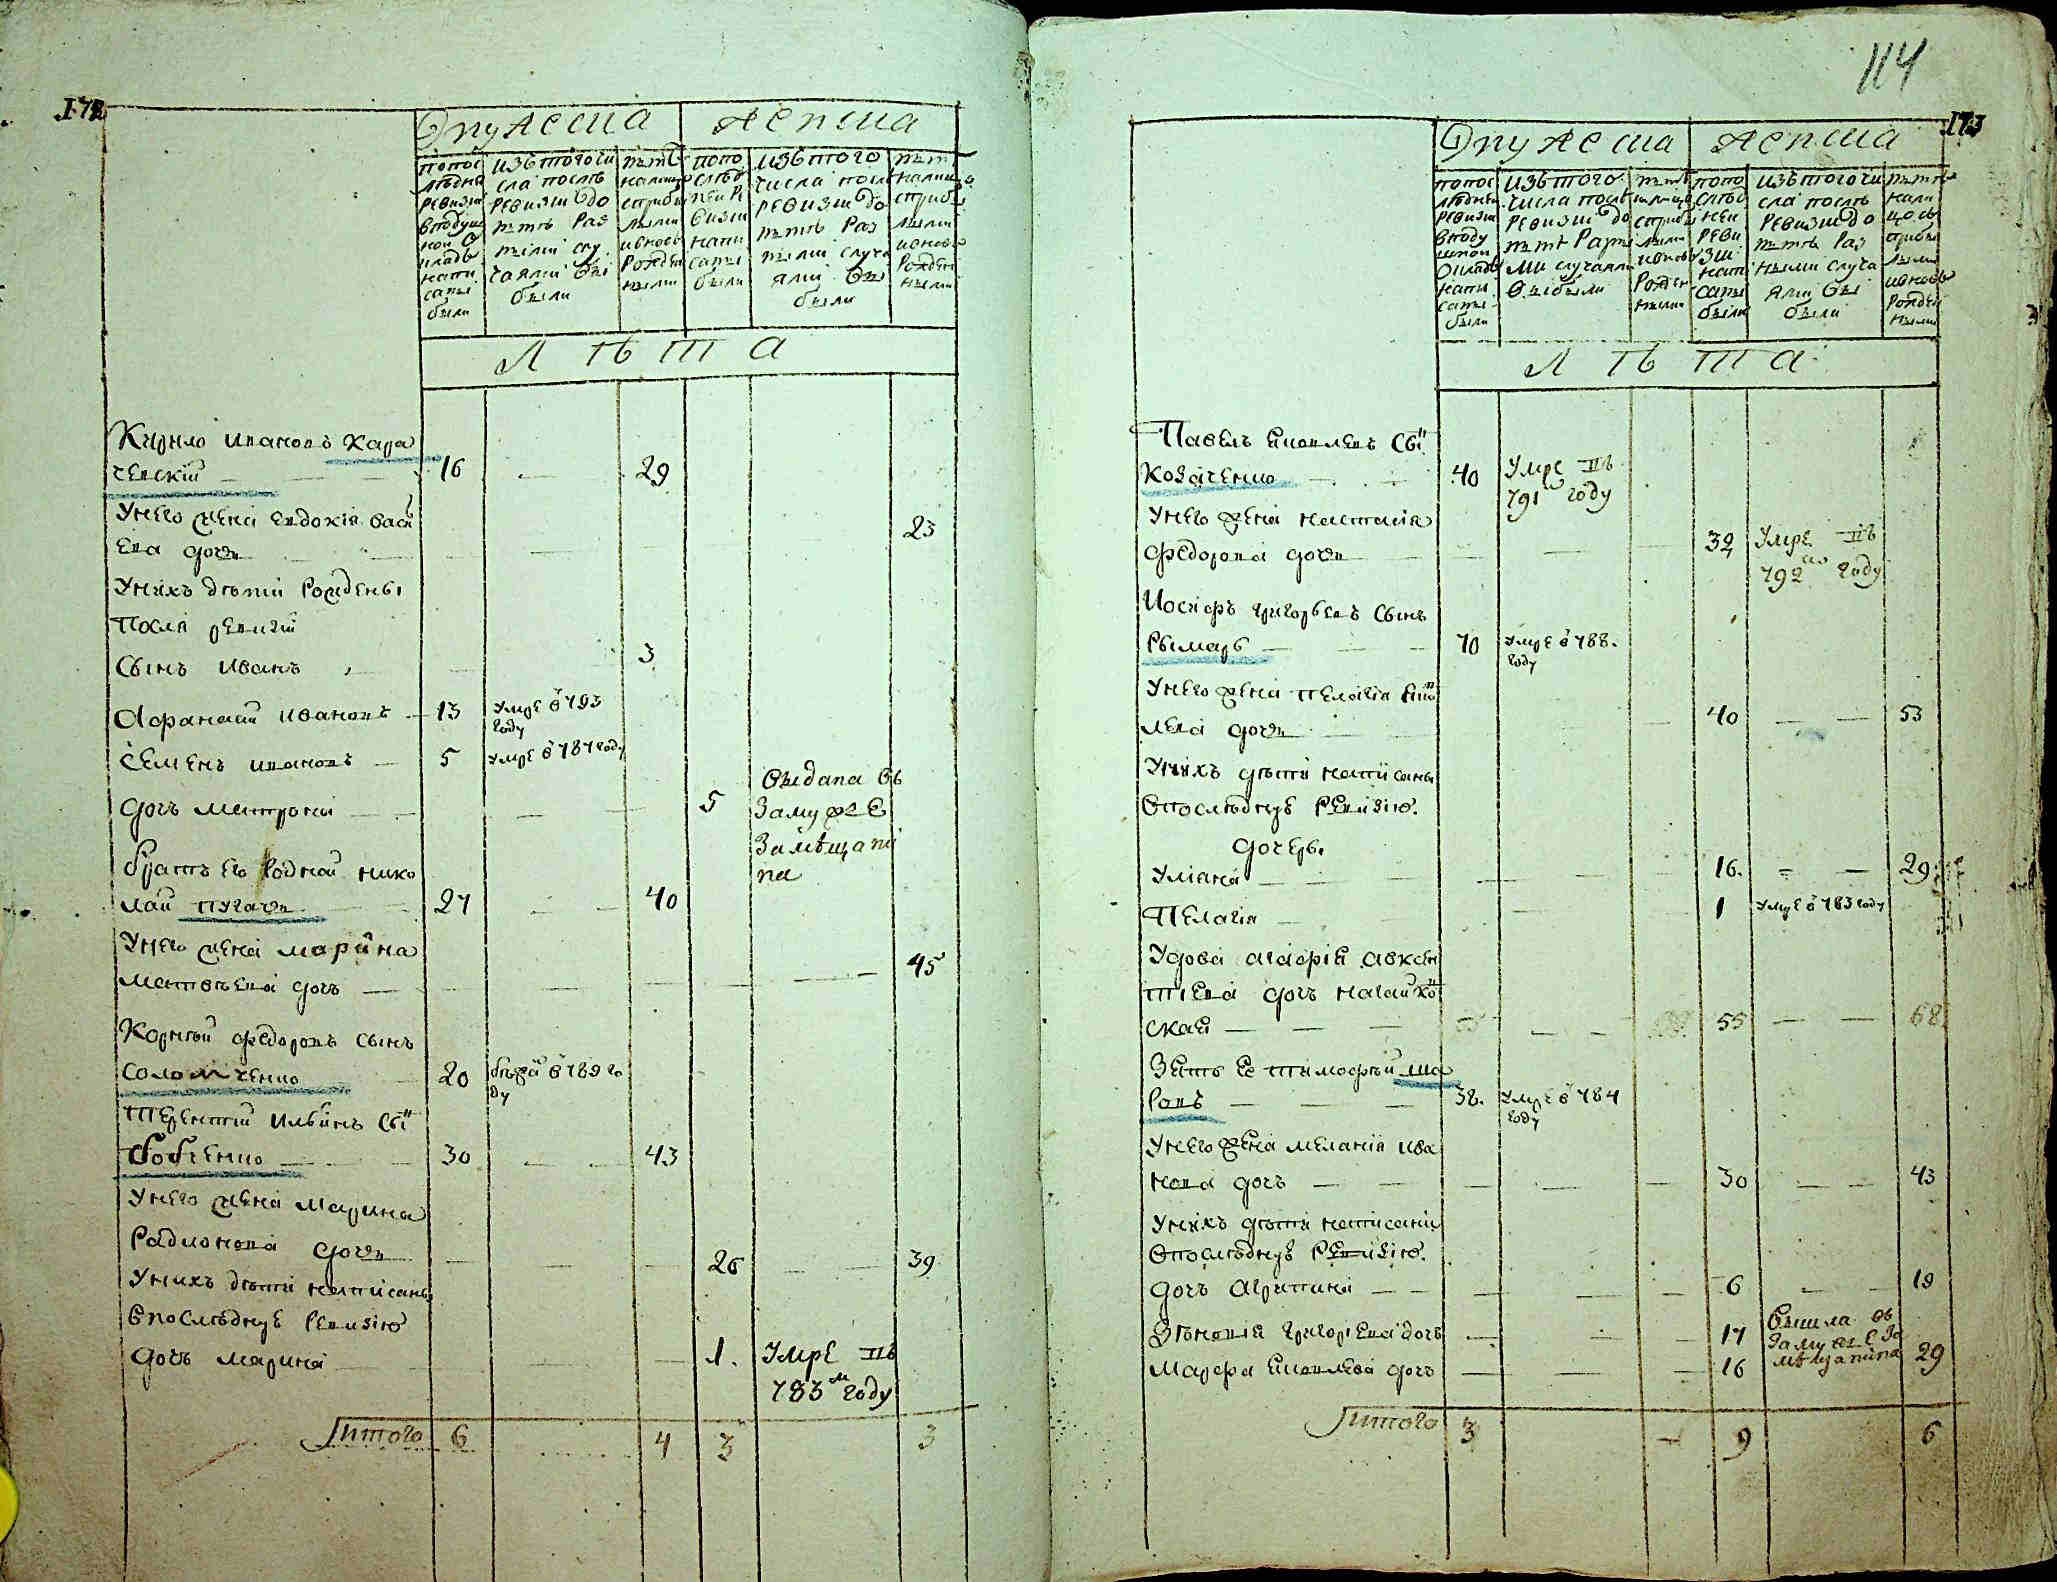 172
О мужеска женска
попос
лѣдне
ревизи
вподуш
ной о
кладъ
напи
саны
были
изъ того чи
сла послѣ
ревизии до
нѣтъ раз
ными слу
чаями вы
были
нынѣ
налицо
сприбы
лыми
ивновь
рожден
ными
попо
слѣд
ней ре
визии
напи
саны
были
изъ того
числа посл
ревизии до
нѣтъ раз
ными случа
ями вы
были
нынѣ
налицо
сприбы
лыми
ивновь
рожден
ными
Лѣта
Кирило Ивановъ Кара
чевскій 16 29
Унего жена Евдокія Васи
ева дочь 23
Унихъ дѣти рождены
после ревизіи
сынъ Иванъ 3
Афанасій Ивановъ 13 умре в 793
году
Семенъ Ивановъ 5 умре в 787 году
дочь Матрона 5 выдана въ
замуже
замѣщани
на
братъ его родной Нико
лай Пугачъ 27 40
Унего жена Марина
Матвѣева дочь 45
Корнѣй Федоровъ сынъ
20 бѣжа в 789 го
ду
Терентій Ильинъ сы
Бобченко 30 43
Унего жена Марина
Радионова дочь 26 39
Унихъ дѣти написаны
впослѣднуе ревизію
дочь Марина 1. умре въ
783 м году
Итого 6 4 3 3
114
173
О мужеска женска
попос
лѣдней
ревизи
вподу
шной
окладъ
напи
саны
были
изъ того
числа послѣ
ревизии до
нѣтъ разны
ми случаями
выбыли
нынѣ
налицо
сприбы
лыми
ивновь
рожден
ными
попо
слѣд
ней
реви
зии
напи
саны
были
изъ того чи
сла послѣ
ревизии до
нѣтъ раз
ными случа
ями вы
были
нынѣ
нали
цо съ
прибы
лыми
ивновь
рожден
ными
Лѣта
Павелъ Яковлевъ сы
Козаченко 40 умре въ
791 году
Унего жена Настасія
Федорова дочь 32 умре въ
792 го году
Иосифъ Григорьевъ сынъ
Рымарь 70 умре в 788.
году
Унего жена Пелагія
лева дочь 40 53
Унихъ дѣти написаны
впослѣднуе ревизію.
дочери
Уліана 16. 29
Пелагія 1 умре в 783 году
Удова Агафія Авксен
тіева дочь
ская 55 68
Зять ее Тимофѣй Ша
ровъ 38. умре в 784
году
Унего жена Меланія Ива
нова дочь 30 43
Унихъ дѣти написани
впослѣднуе ревизію.
дочь Агрипина 6 19
Зѣновія Григоріева дочь 17 вышла въ
замуже за
мѣщанина
Марфа Яковлева дочь 16 29
Итого 3 9 6